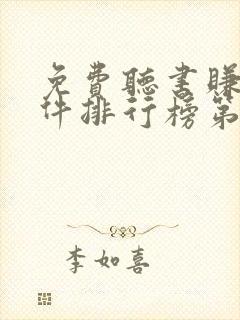 免費聽書賺
件排行榜第
李如喜